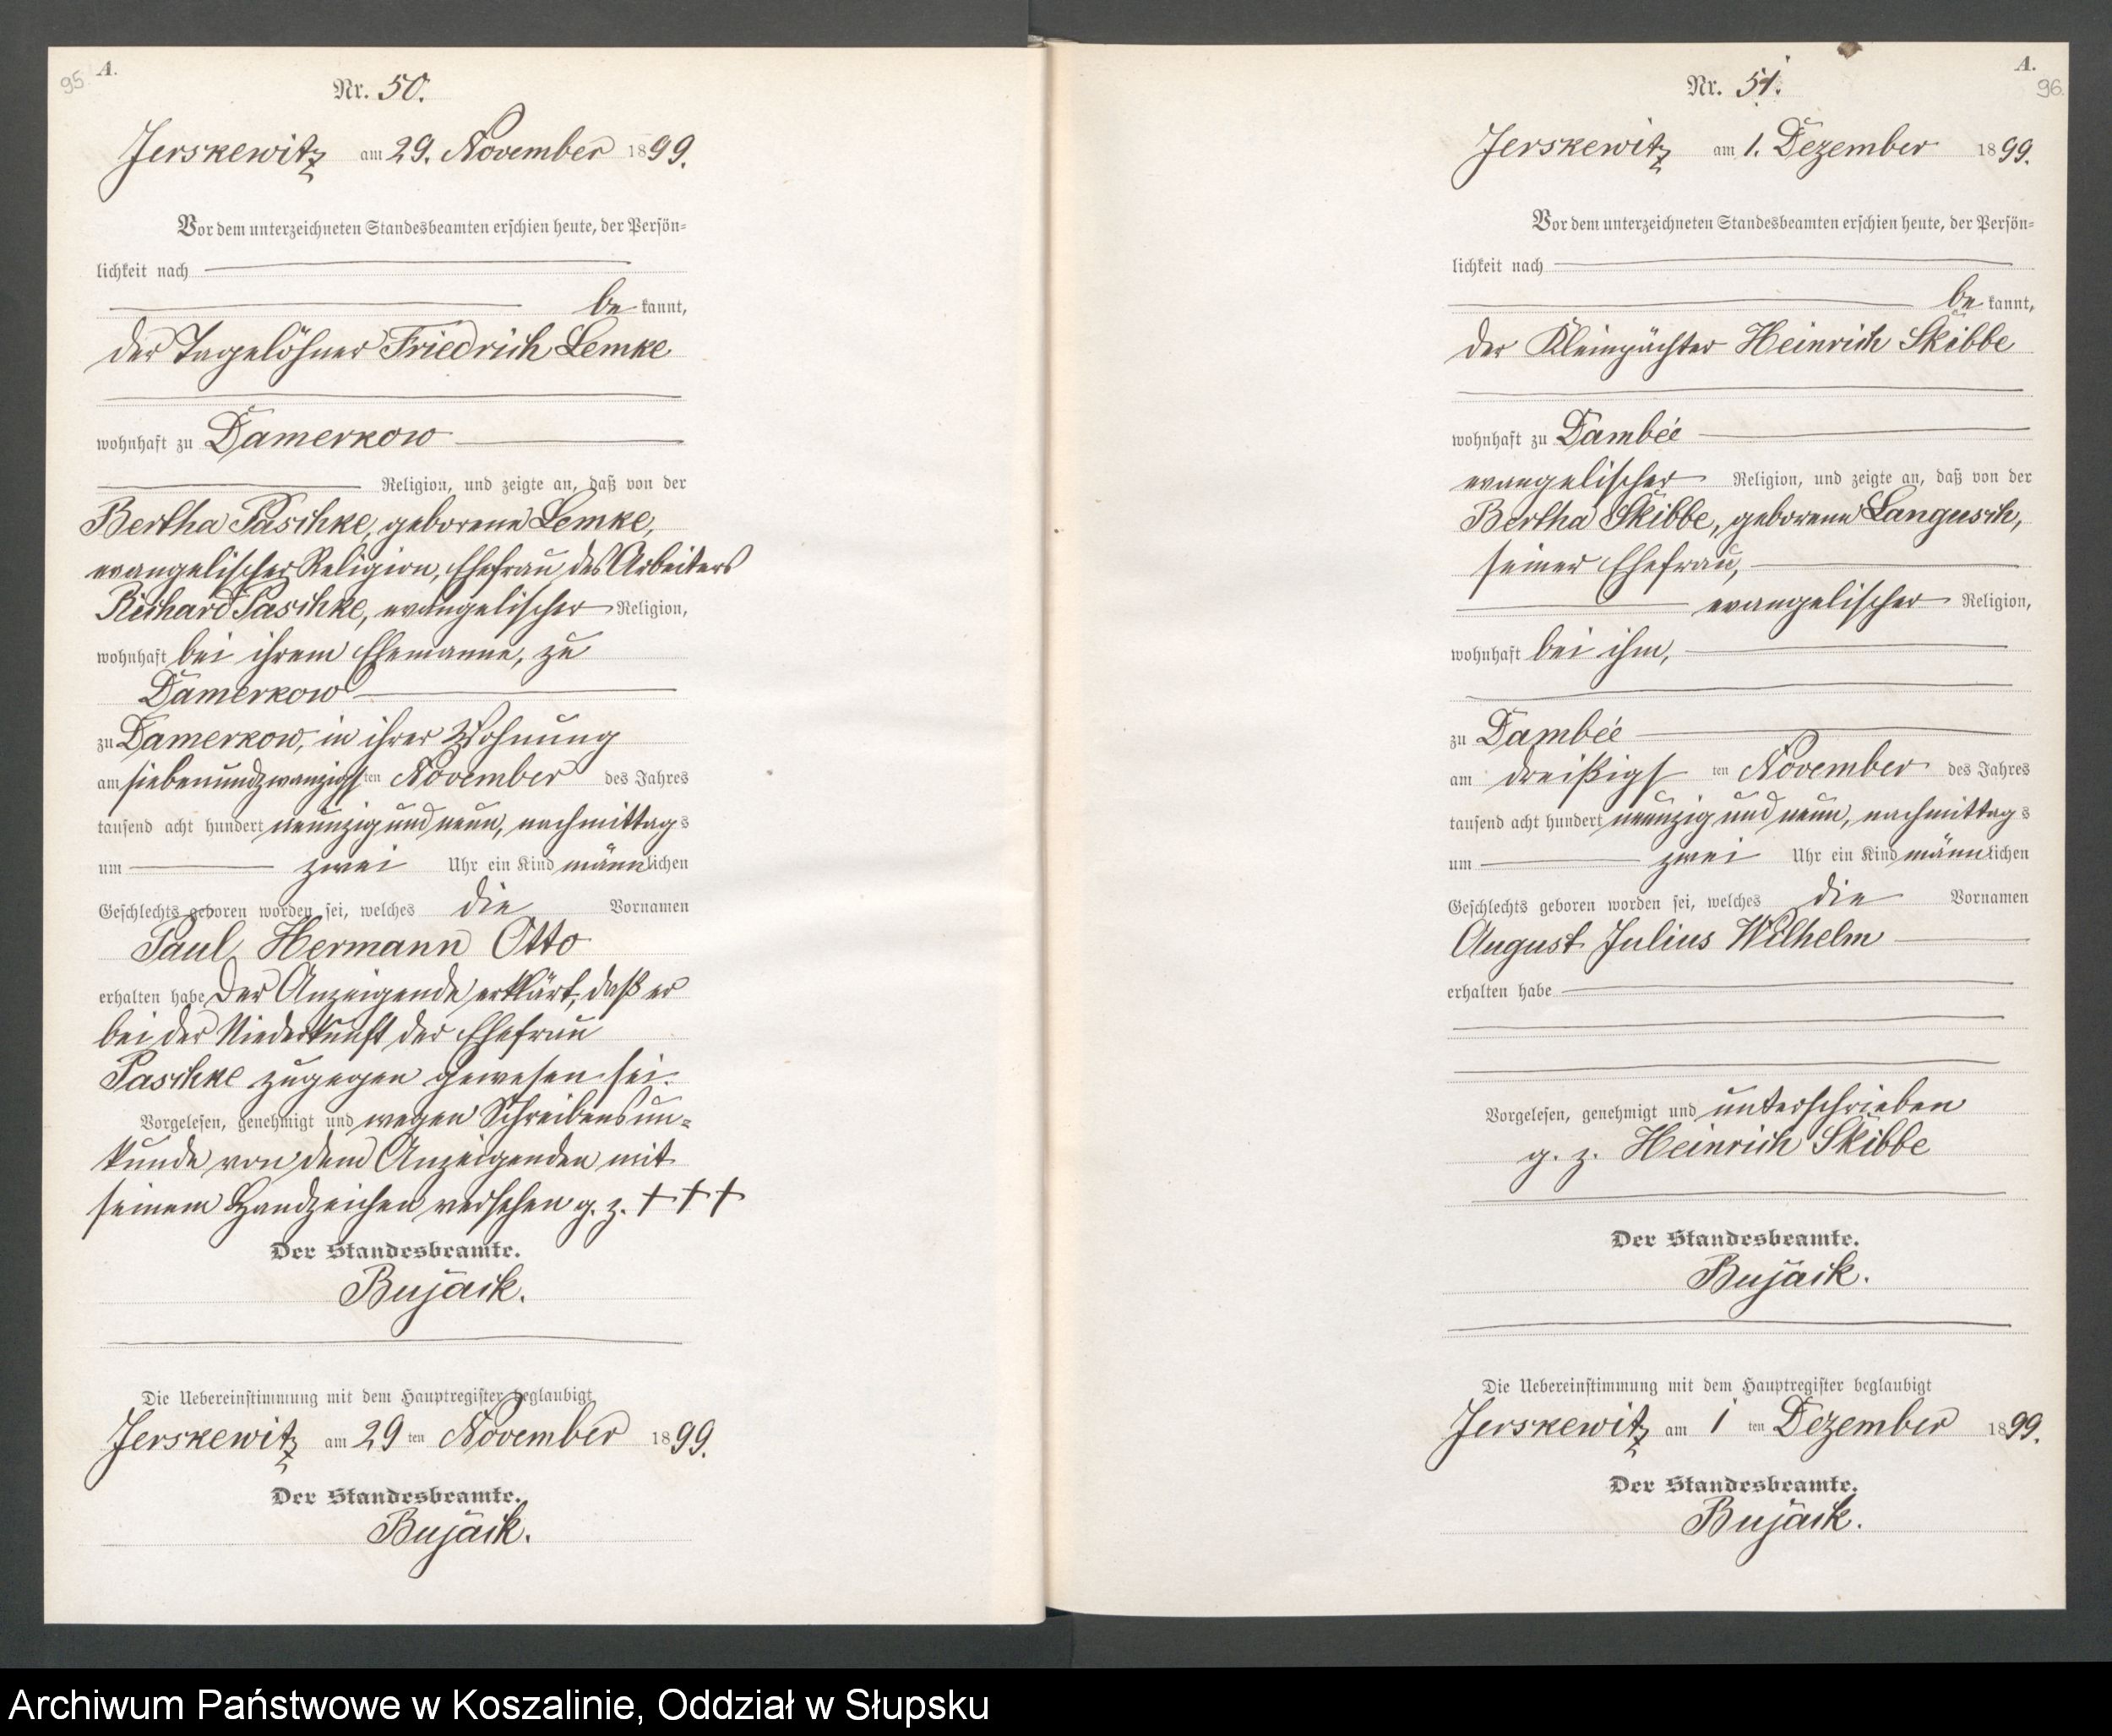 95 A.
Nr. 50.
Jerskewitz am 29. November 1899.
Vor dem unterzeichneten Standesbeamten erschien heute, der Persön-
lichkeit nach
be kannt,
der Tagelöhner Friedrich Lemke
wohnhaft zu Damerkow
Religion, und zeigte an, daß von der
Bertha Paschke, geborene Lemke,
evangelischer Religion, Ehefrau des Arbeiters
Richard Paschke, evangelischer Religion,
wohnhaft bei ihrem Ehemanne, zu
Damerkow
zu Damerkow, in ihrer Wohnung
am siebenundzwanzigsten November des Jahres
tausend acht hundert neunzig und neun, nachmittags
um zwei Uhr ein Kind männlichen
Geschlechts geboren worden sei, welches die Vornamen
Paul Hermann Otto
erhalten habe Der Anzeigende erklärt, daß er
bei der Niederkunft der Ehefrau
Paschke zugegen gewesen sei.
Vorgelesen, genehmigt und wegen Schreibensun-
kunde von dem Anzeigenden mit
seinem Handzeichen versehen g. z. +++
Der Standesbeamte.
Bujack.
Die Uebereinstimmung mit dem Hauptregister beglaubigt
Jerskewitz am 29 ten November 1899.
Der Standesbeamte.
Bujack.
A.
96.
Nr. 51.
Jerskewitz am 1. Dezember 1899.
Vor dem unterzeichneten Standesbeamten erschien heute, der Persön-
lichkeit nach
be kannt,
der Kleinpächter Heinrich Skibbe
wohnhaft zu Dambée
evangelischer Religion, und zeigte an, daß von der
Bertha Skibbe, geborene Langusch,
seiner Ehefrau,
evangelischer Religion,
wohnhaft bei ihm,
zu Dambée
am dreißigsten November des Jahres
tausend acht hundert neunzig und neun, nachmittags
um zwei Uhr ein Kind männlichen
Geschlechts geboren worden sei, welches die Vornamen
August Julius Wilhelm
erhalten habe
Vorgelesen, genehmigt und unterschrieben
g. z. Heinrich Skibbe
Der Standesbeamte.
Bujack.
Die Uebereinstimmung mit dem Hauptregister beglaubigt
Jerskewitz am 1 ten Dezember 1899.
Der Standesbeamte.
Bujack.
Archiwum Państwowe w Koszalinie, Oddział w Słupsku